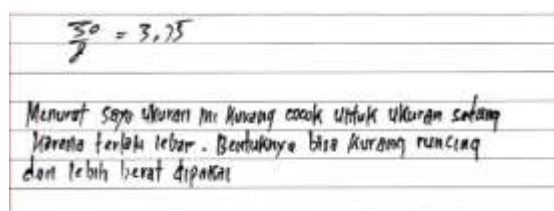 30/8 = 3,75
Menurut saya ukuran ini kurang cocok untuk ukuran sedang
karena terlalu lebar. Bentuknya bisa kurang runcing
dan lebih berat dipakai